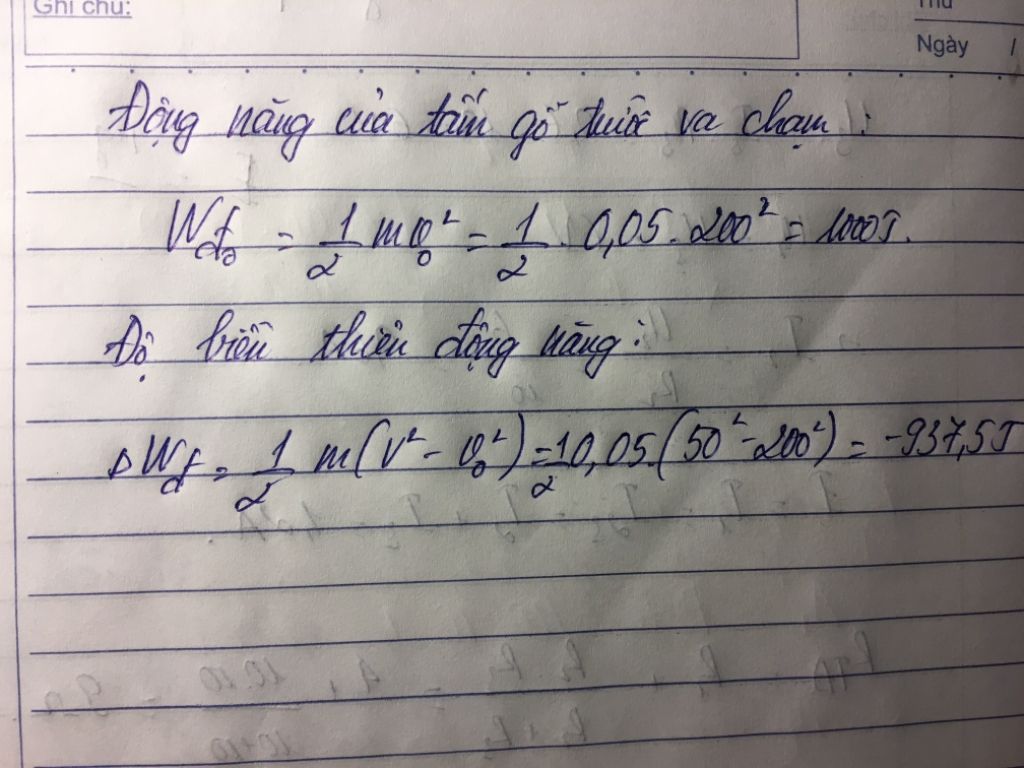 Ghi chú:
Thứ
Ngày /
Động năng của tấm gỗ trước va chạm :
Wđ₀ = 1/2 mv₀² = 1/2 . 0,05 . 200² = 1000J.
Độ biến thiên động năng :
ΔWđ = 1/2 m(V² - v₀²) = 1/2 0,05.(50² - 200²) = -937,5J